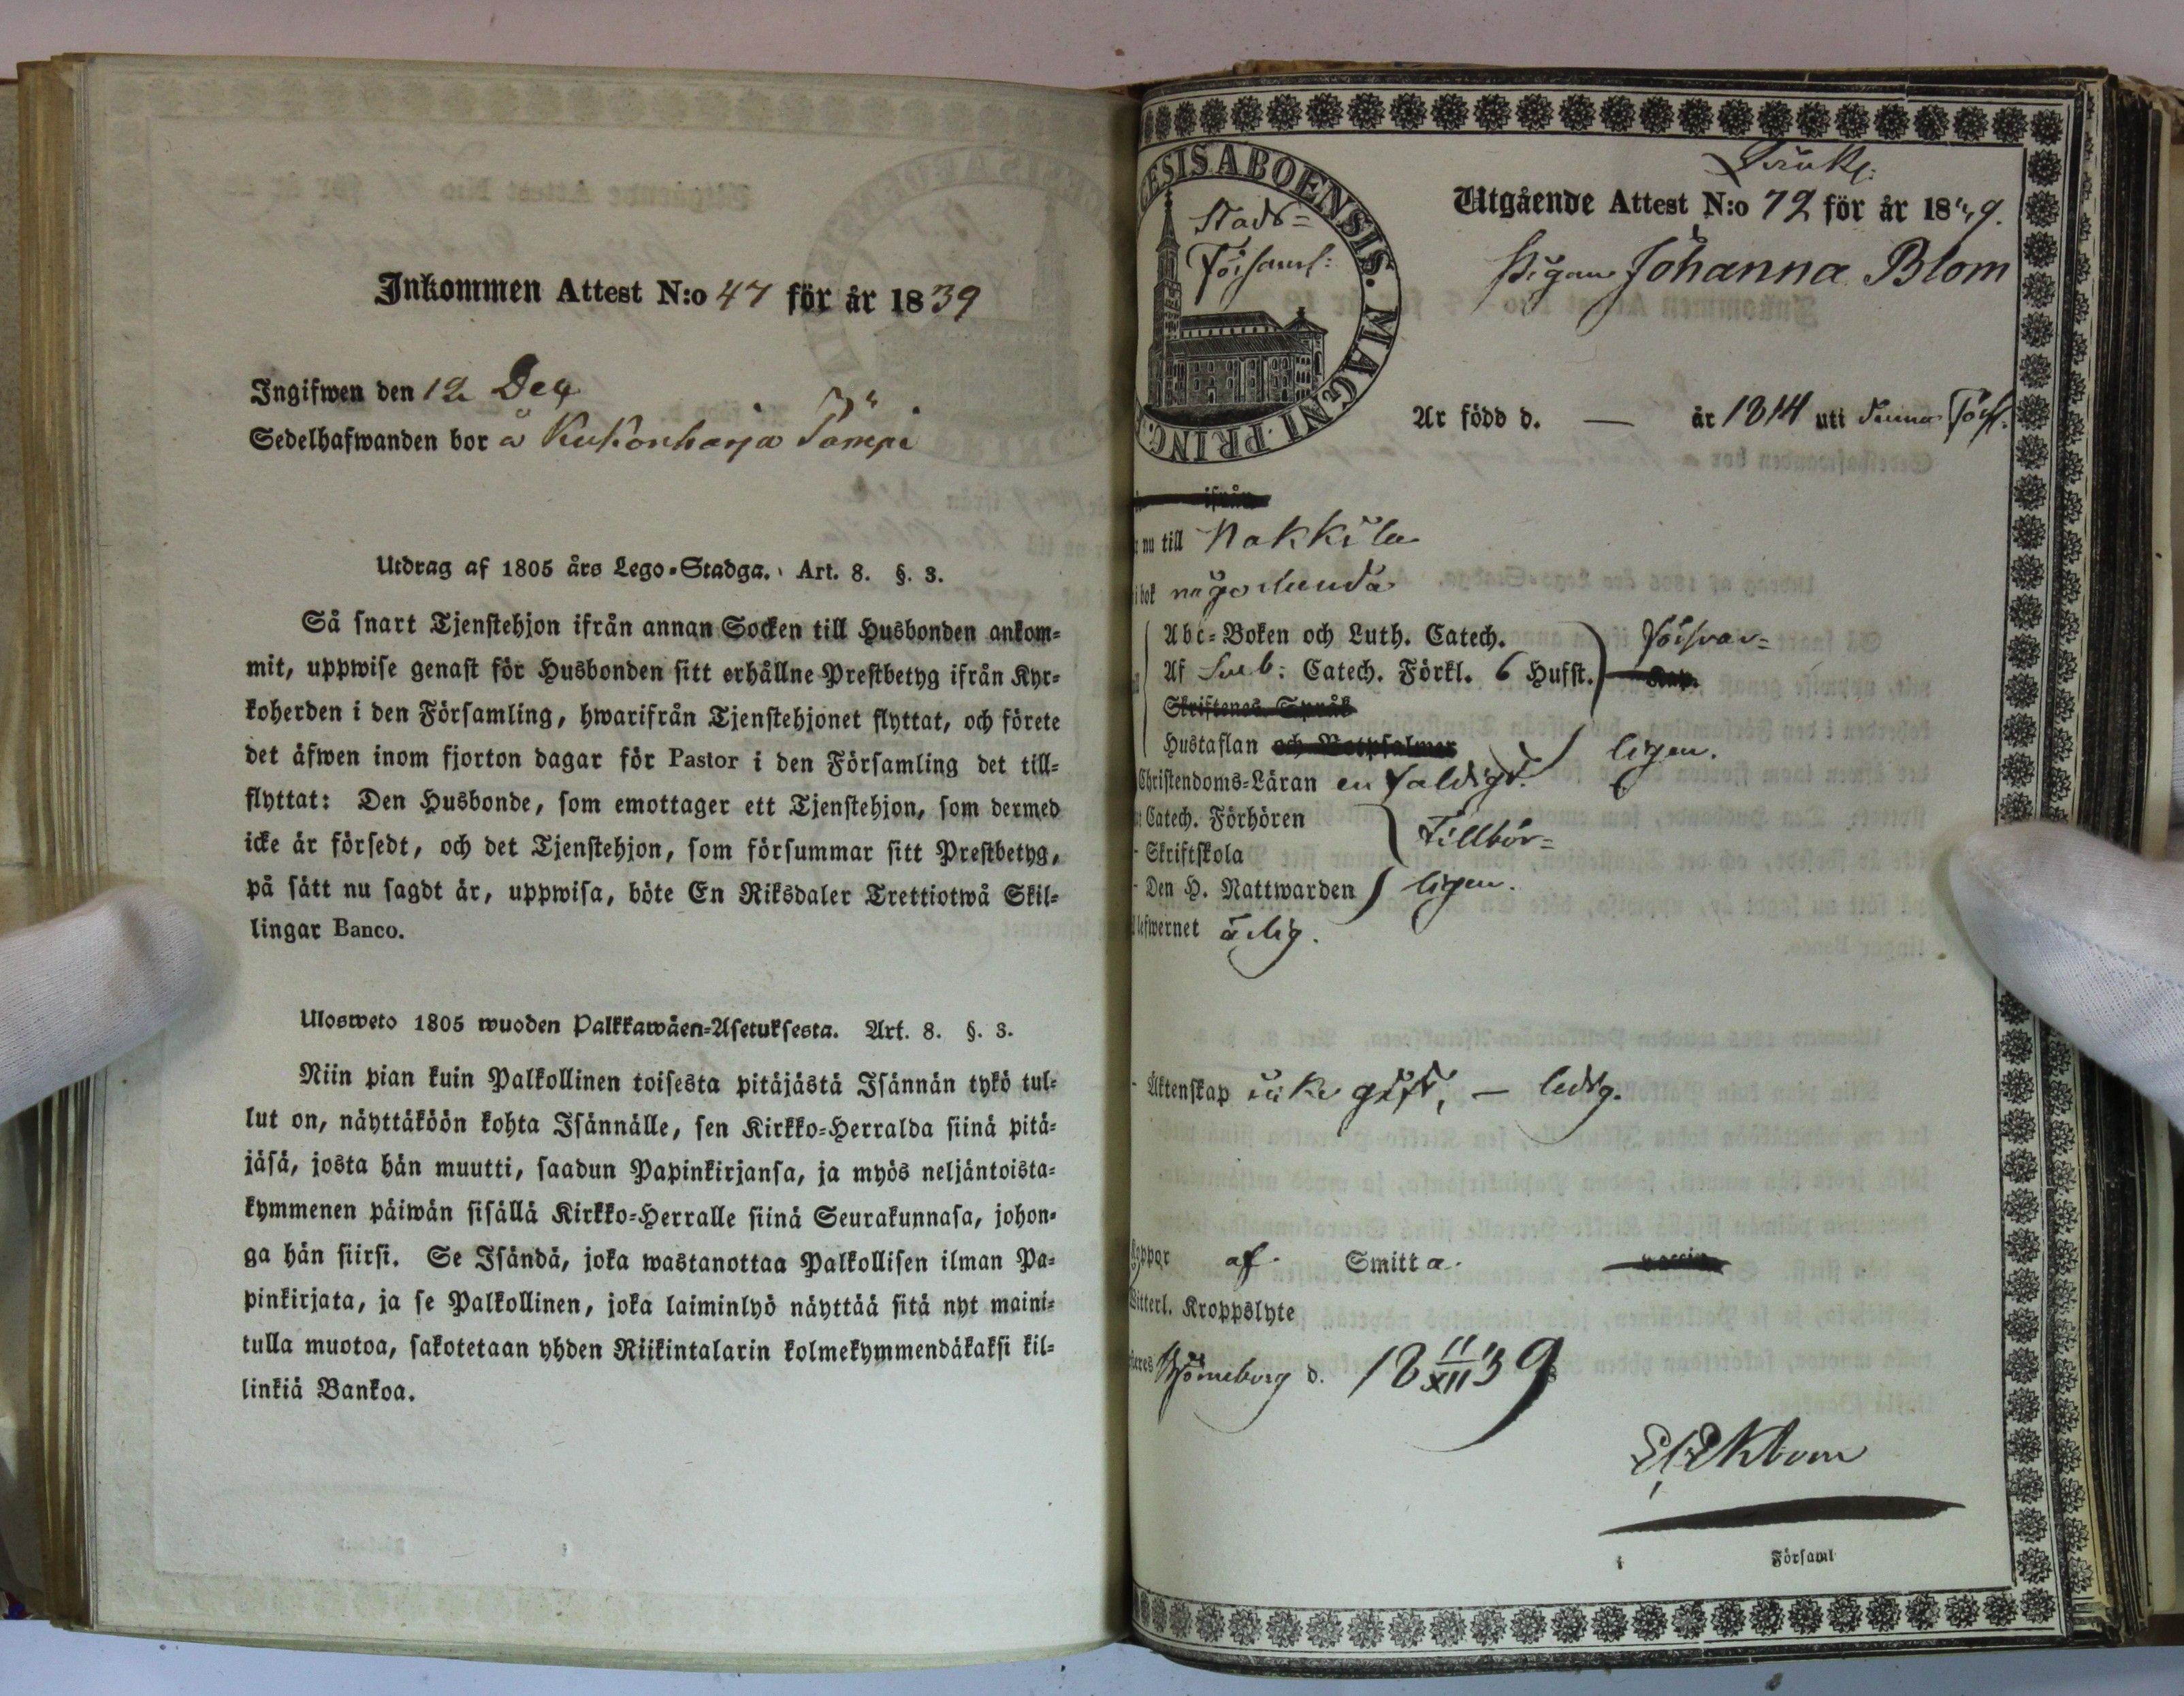 Inkommen Attest N:o 47 för år 1839
Ingifwen den 12 Dec
Sedelhafwanden bor å Kukonharja Tömpi
Utdrag af 1805 års Lego-Stadga. Art. 8. §. 3.
Så snart Tjenstehjon ifrån annan Socken till Husbonden ankom-
mit, uppwise genast för Husbonden sitt erhållne Prestbetyg ifrån Kyr-
koherden i den Församling, hwarifrån Tjenstehjonet flyttat, och förete
det äfwen inom fjorton dagar för Pastor i den Församling det till-
flyttat: Den Husbonde, som emottager ett Tjenstehjon, som dermed
icke är försedt, och det Tjenstehjon, som försummar sitt Prestbetyg,
på sätt nu sagdt är, uppwisa, böte En Riksdaler Trettiotwå Skil-
lingar Banco.
Ulosweto 1805 wuoden Palkkawäen-Asetuksesta. Art. 8. §. 3.
Niin pian kuin Palkollinen toisesta pitäjästä Isännän tykö tul-
lut on, näyttäköön kohta Isännälle, sen Kirkko-Herralda siinä pitä-
jäsä, josta hän muutti, saadun Papinkirjansa, ja myös neljäntoista-
kymmenen päiwän sisällä Kirkko-Herralle siinä Seurakunnasa, johon-
ga hän siirsi. Se Isändä, joka wastanottaa Palkollisen ilman Pa-
pinkirjata, ja se Palkollinen, joka laiminlyö näyttää sitä nyt maini-
tulla muotoa, sakotetaan yhden Riikintalarin kolmekymmendäkaksi kil-
linkiä Bankoa.
ESIS ABOENSIS. MAGNI PRINC
Stads-
Församl:
Utgående Attest N:o 72 för år 1839.
Pigan Johanna Blom
Är född d. — år 1814 uti denna Förs.
ifrån
nu till Nakkila
i bok någorlunda
Abc-Boken och Luth. Catech. Försvar-
Af Sveb: Catech. Förkl. 6 Hufst.
Skriftenes Språk
Hustaflan och Botpsalmer ligen.
Christendoms-Läran enfaldigt.
Catech. Förhören Tillbör-
- Skriftskola
- Den H. Nattwarden ligen.
lefwernet ärlig.
- Äktenskap icke gift, — ledig.
koppor af Smitta. vaccin
Witterl. Kroppslyte
Björneborg d. 18 11/XII 39
Ekbom
i Församl